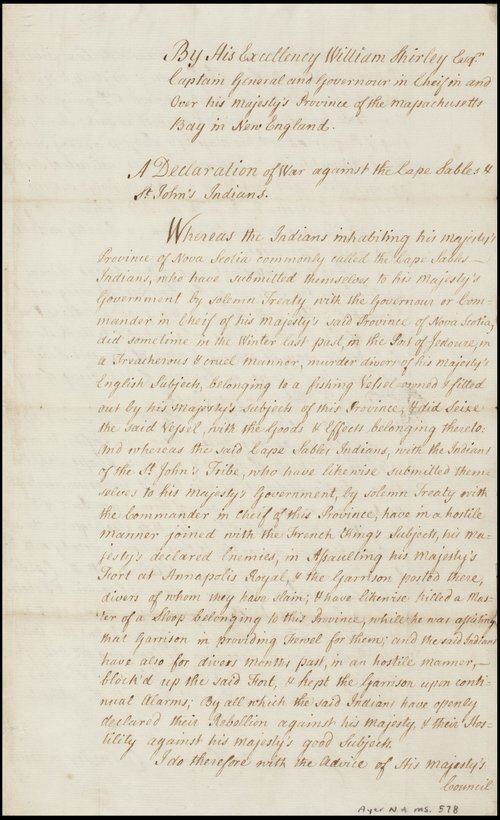 By His Excellency William Shirley Esqr.
Captain General and Governour in Cheif in and
Over his Majesty's Province of the Massachusetts
Bay in New England.
A Declaration of War against the Cape Sables &
St. John's Indians.
Whereas the Indians inhabiting his Majesty's
Province of Nova Scotia commonly called the Cape Sables
Indians, who have submitted themselves to his Majesty's
Government by solemn Treaty with the Governour or Com-
mander in Cheif of his Majesty's said Province of Nova Scotia,
did sometime in the Winter last past, in the Port of Jedoure, in
a Treacherous & cruel manner, murder divers of his Majesty's
English Subjects, belonging to a fishing Vessel owned & fitted
out by his Majesty's Subjects of this Province, & did Seize
the said Vessel, with the Goods & Effects belonging thereto:
And whereas the said Cape Sables Indians, with the Indians
of the St. John's Tribe, who have likewise submitted them
selves to his Majesty's Government, by solemn Treaty with
the Commander in Cheif of this Province, have in a hostile
manner joined with the French King's Subjects, his Ma-
jesty's declared Enemies, in Assaulting his Majesty's
Fort at Annapolis Royal, & the Garrison posted there,
divers of whom they have slain; & have likewise killed a Mas-
ter of a Sloop belonging to this Province, while he was assisting
that Garrison in providing Fewel for them; and the said Indians
have also for divers months past, in an hostile manner,
block'd up the said Fort, & kept the Garrison upon conti-
nual Alarms; By all which the said Indians have openly
declared their Rebellion against his Majesty, & their Hos-
tility against his Majesty's good Subjects.
I do therefore with the Advice of His Majesty's
Council
Ayer N A ms. 578